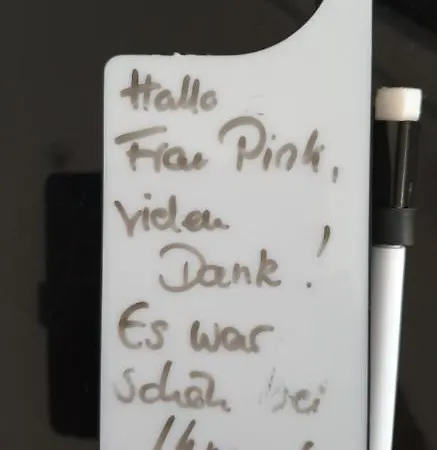 Hallo
Frau Pink,
vielen
Dank!
Es war
schön bei